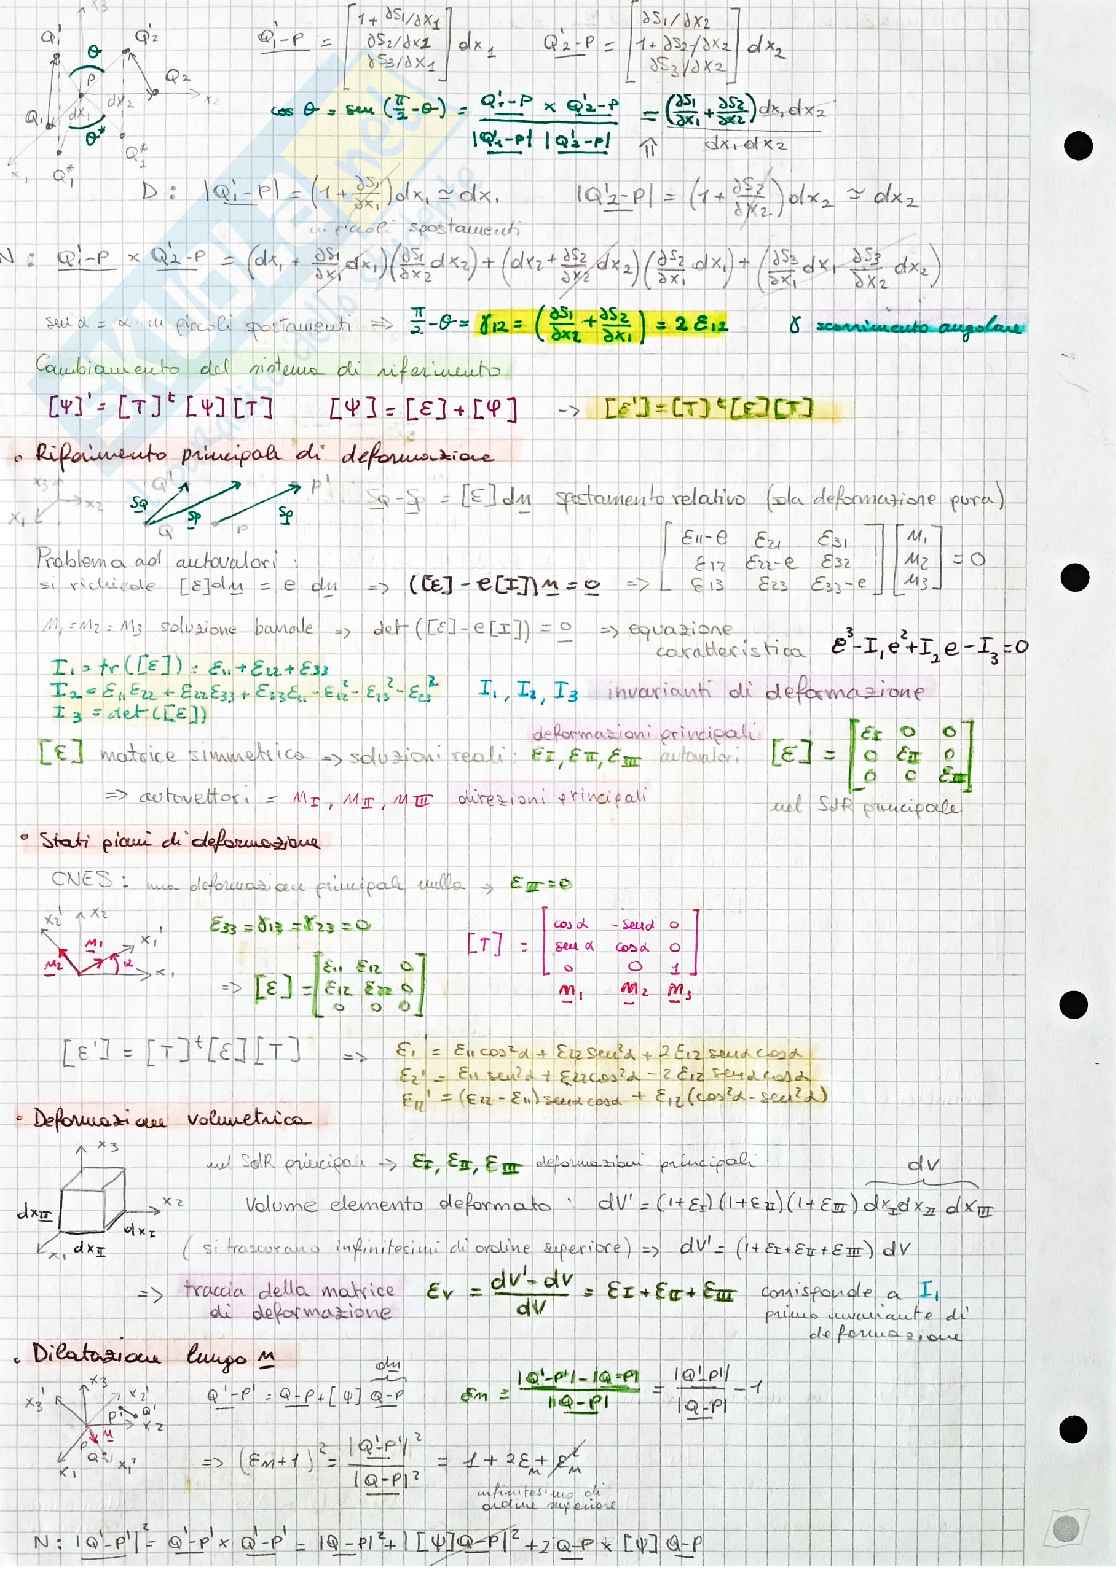 Q₁'-P = [1+∂S₁/∂x₁ ; ∂S₂/∂x₁ ; ∂S₃/∂x₁] dx₁   Q₂'-P = [∂S₁/∂x₂ ; 1+∂S₂/∂x₂ ; ∂S₃/∂x₂] dx₂
cos θ = sen (π/2 - θ) = Q₁'-P × Q₂'-P / |Q₁'-P| |Q₂'-P| = (∂S₁/∂x₁ + ∂S₂/∂x₂) dx₁ dx₂ / dx₁ dx₂
D: |Q₁'-P| = (1+∂S₁/∂x₁) dx₁ ≃ dx₁   |Q₂'-P| = (1+∂S₂/∂x₂) dx₂ ≃ dx₂
in piccoli spostamenti
N: Q₁'-P × Q₂'-P = (dx₁ + ∂S₁/∂x₁ dx₁)(∂S₁/∂x₂ dx₂) + (dx₂ + ∂S₂/∂x₂ dx₂)(∂S₂/∂x₁ dx₁) + (∂S₃/∂x₁ dx₁ ∂S₃/∂x₂ dx₂)
sen α = α in piccoli spostamenti ⇒ π/2 - θ = γ₁₂ = (∂S₁/∂x₂ + ∂S₂/∂x₁) = 2 ε₁₂   γ scorrimento angolare
Cambiamento del sistema di riferimento
[Ψ]' = [T]ᵗ [Ψ] [T]   [Ψ] = [ε] + [φ] → [ε'] = [T]ᵗ [ε] [T]
• Riferimento principali di deformazione
SQ - Sp = [ε] dn spostamento relativo (sola deformazione pura)
Problema ad autovalori:
si richiede [ε] dn = e dn ⇒ ([ε] - e[I]) n = 0 ⇒ [ε₁₁-e ε₂₁ ε₃₁ ; ε₁₂ ε₂₂-e ε₃₂ ; ε₁₃ ε₂₃ ε₃₃-e] [n₁ ; n₂ ; n₃] = 0
n₁ = n₂ = n₃ soluzione banale ⇒ det([ε] - e[I]) = 0 ⇒ equazione caratteristica e³ - I₁e² + I₂e - I₃ = 0
I₁ = tr([ε]) = ε₁₁ + ε₂₂ + ε₃₃
I₂ = ε₁₁ε₂₂ + ε₂₂ε₃₃ + ε₃₃ε₁₁ - ε₁₂² - ε₁₃² - ε₂₃²   I₁, I₂, I₃ invarianti di deformazione
I₃ = det([ε])
deformazioni principali
[ε] matrice simmetrica ⇒ soluzioni reali: εI, εII, εIII autovalori   [ε] = [εI 0 0 ; 0 εII 0 ; 0 0 εIII]
⇒ autovettori = nI, nII, nIII direzioni principali   nel SdR principale
• Stati piani di deformazione
CNES: una deformazione principali nulla → εIII = 0
ε₃₃ = γ₁₃ = γ₂₃ = 0   [T] = [cosα -senα 0 ; senα cosα 0 ; 0 0 1]
n₁ n₂ n₃
⇒ [ε] = [ε₁₁ ε₁₂ 0 ; ε₁₂ ε₂₂ 0 ; 0 0 0]
[ε'] = [T]ᵗ [ε] [T] ⇒ ε₁' = ε₁₁cos²α + ε₂₂sen²α + 2ε₁₂senαcosα
ε₂' = ε₁₁sen²α + ε₂₂cos²α - 2ε₁₂senαcosα
ε₁₂' = (ε₂₂ - ε₁₁)senαcosα + ε₁₂(cos²α - sen²α)
• Deformazione volumetrica
nel SdR principali → εI, εII, εIII deformazioni principali
Volume elemento deformato: dV' = (1+εI)(1+εII)(1+εIII) dxI dxII dxIII
dV
(si trascurano infinitesimi di ordine superiore) ⇒ dV' = (1+εI+εII+εIII) dV
⇒ traccia della matrice di deformazione εv = dV' - dV / dV = εI + εII + εIII corrisponde a I₁
primo invariante di deformazione
• Dilatazione lungo n
Q'-P' = Q-P + [Ψ] Q-P   dn   εn = |Q'-P'| - |Q-P| / |Q-P| = |Q'-P'| / |Q-P| - 1
⇒ (εn + 1)² = |Q'-P'|² / |Q-P|² = 1 + 2εn + εn²
infinitesimo di
ordine superiore
N: |Q'-P'|² = Q'-P' × Q'-P' = |Q-P|² + |[Ψ] Q-P|² + 2 Q-P × [Ψ] Q-P